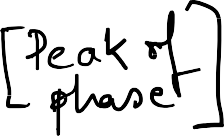 [Peak of
phase]